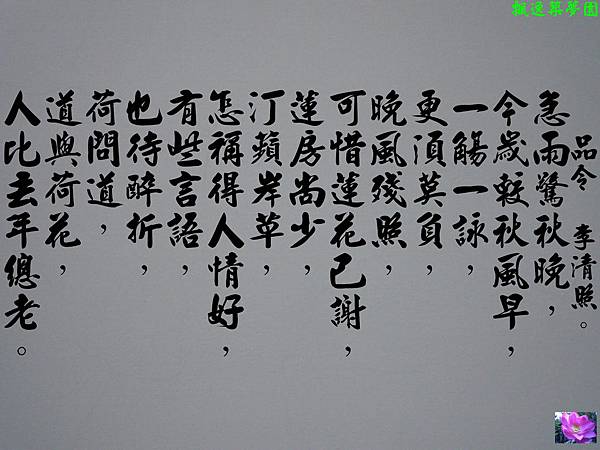 品令 李清照。
急雨驚秋晚，
今歲較秋風早，
一觴一詠，
更須莫負，
晚風殘照，
可惜蓮花已謝，
蓮房尚少，
汀蘋岸草，
怎稱得人情好，
有些言語，
也待醉折，
荷問道，
道與荷花，
人比去年總老。
築夢園